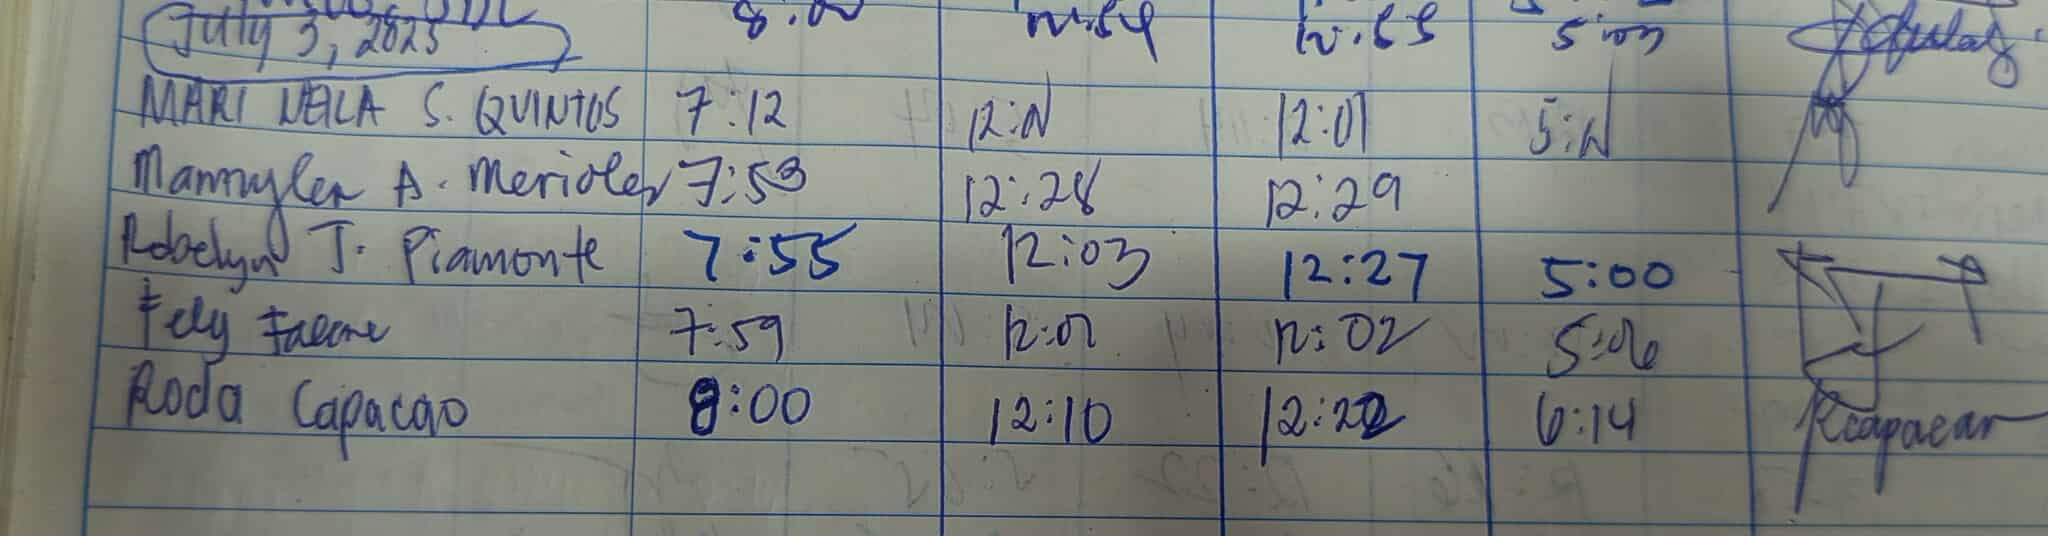 July 3, 2025 12:54 12:55 5:03
MARI NEILA S. QUINTOS 7:12 12:N 12:01 5:N
Mannylen A. Merioles 7:53 12:28 12:29
Robelyn J. Piamonte 7:55 12:03 12:27 5:00
Fely 7:59 12:01 12:02 5:06
Roda Capacao 8:00 12:10 12:22 6:14 Rcapacao